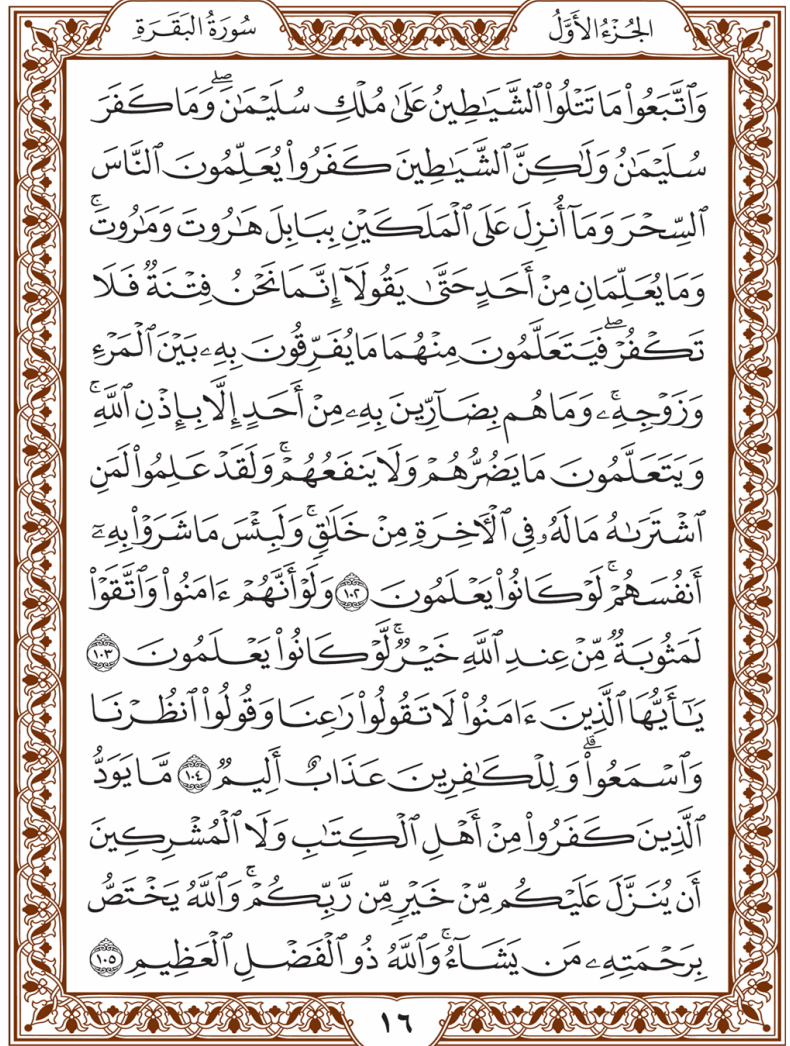 الجُزْءُ الأَوَّلُ
سُورَةُ البَقَرَةِ
وَٱتَّبَعُوا۟ مَا تَتْلُوا۟ ٱلشَّيَـٰطِينُ عَلَىٰ مُلْكِ سُلَيْمَـٰنَ ۖ وَمَا كَفَرَ
سُلَيْمَـٰنُ وَلَـٰكِنَّ ٱلشَّيَـٰطِينَ كَفَرُوا۟ يُعَلِّمُونَ ٱلنَّاسَ
ٱلسِّحْرَ وَمَآ أُنزِلَ عَلَى ٱلْمَلَكَيْنِ بِبَابِلَ هَـٰرُوتَ وَمَـٰرُوتَ ۚ
وَمَا يُعَلِّمَانِ مِنْ أَحَدٍ حَتَّىٰ يَقُولَآ إِنَّمَا نَحْنُ فِتْنَةٌ فَلَا
تَكْفُرْ ۖ فَيَتَعَلَّمُونَ مِنْهُمَا مَا يُفَرِّقُونَ بِهِۦ بَيْنَ ٱلْمَرْءِ
وَزَوْجِهِۦ ۚ وَمَا هُم بِضَآرِّينَ بِهِۦ مِنْ أَحَدٍ إِلَّا بِإِذْنِ ٱللَّهِ ۚ
وَيَتَعَلَّمُونَ مَا يَضُرُّهُمْ وَلَا يَنفَعُهُمْ ۚ وَلَقَدْ عَلِمُوا۟ لَمَنِ
ٱشْتَرَىٰهُ مَا لَهُۥ فِى ٱلْـَٔاخِرَةِ مِنْ خَلَـٰقٍ ۚ وَلَبِئْسَ مَا شَرَوْا۟ بِهِۦٓ
أَنفُسَهُمْ ۚ لَوْ كَانُوا۟ يَعْلَمُونَ ١٠٢ وَلَوْ أَنَّهُمْ ءَامَنُوا۟ وَٱتَّقَوْا۟
لَمَثُوبَةٌ مِّنْ عِندِ ٱللَّهِ خَيْرٌ ۚ لَّوْ كَانُوا۟ يَعْلَمُونَ ١٠٣
يَـٰٓأَيُّهَا ٱلَّذِينَ ءَامَنُوا۟ لَا تَقُولُوا۟ رَٰعِنَا وَقُولُوا۟ ٱنظُرْنَا
وَٱسْمَعُوا۟ ۗ وَلِلْكَـٰفِرِينَ عَذَابٌ أَلِيمٌ ١٠٤ مَّا يَوَدُّ
ٱلَّذِينَ كَفَرُوا۟ مِنْ أَهْلِ ٱلْكِتَـٰبِ وَلَا ٱلْمُشْرِكِينَ
أَن يُنَزَّلَ عَلَيْكُم مِّنْ خَيْرٍ مِّن رَّبِّكُمْ ۗ وَٱللَّهُ يَخْتَصُّ
بِرَحْمَتِهِۦ مَن يَشَآءُ ۚ وَٱللَّهُ ذُو ٱلْفَضْلِ ٱلْعَظِيمِ ١٠٥
١٦